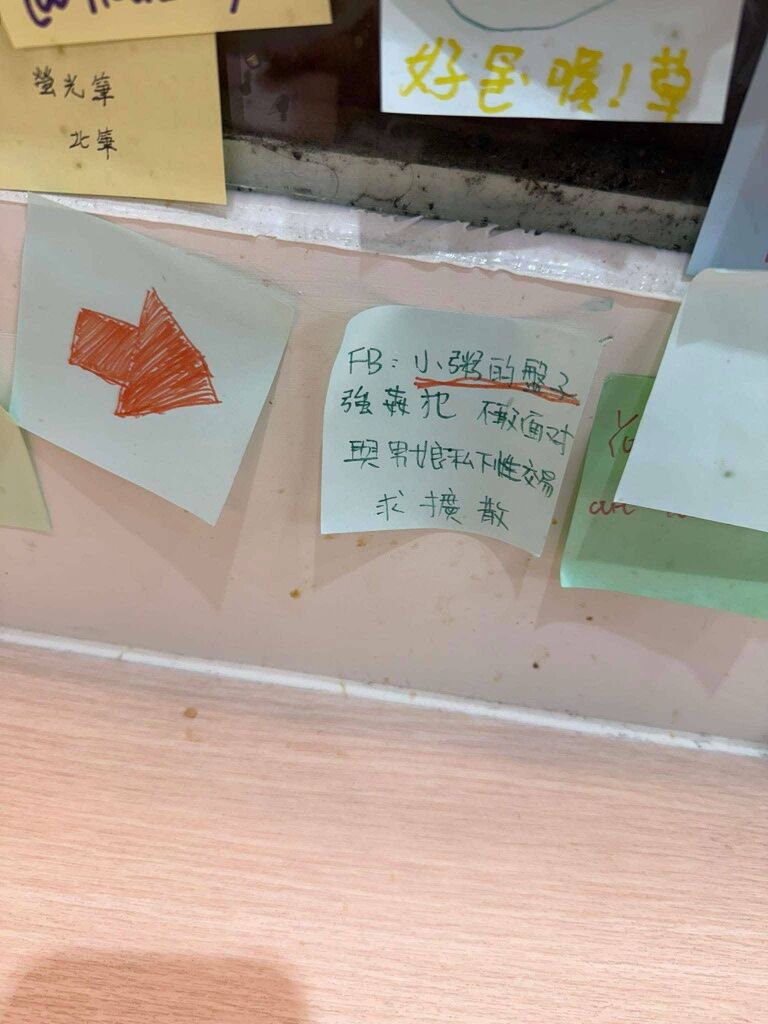 螢光筆
北筆
好色噢!草
FB:小粥的盤子
強姦犯 不敢面对
與男娘私下性交易
求擴散